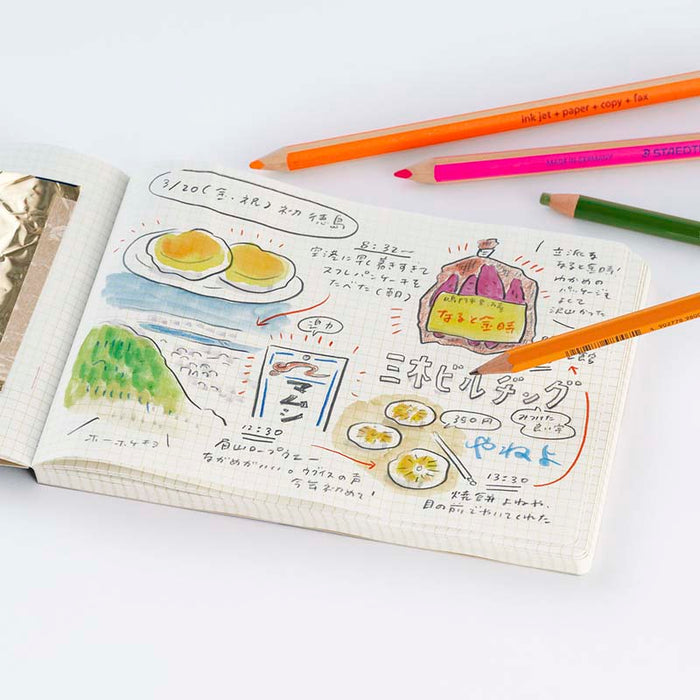 3/20(金・祝) 初 徳島
8:32〜
空港に早く着きすぎて
スフレパンケーキを
たべた(朝)
なると金時
立派な
なると金時!
わかめの
パッケージも
よくて
沢山かった
迫力
マムシ
三木ビルヂング
みつけた
良い字
350円
やねよ
ホーホケキョ
12:30
眉山ロープウェー
ながめがいい。ウグイスの声
今年初めて!
13:30
焼餅
目の前でやいてくれた
ink jet + paper + copy + fax
STAEDT